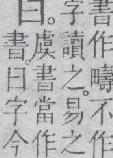 書作疇不作
字讀之。易之
曰。
虞書當作
書曰字今